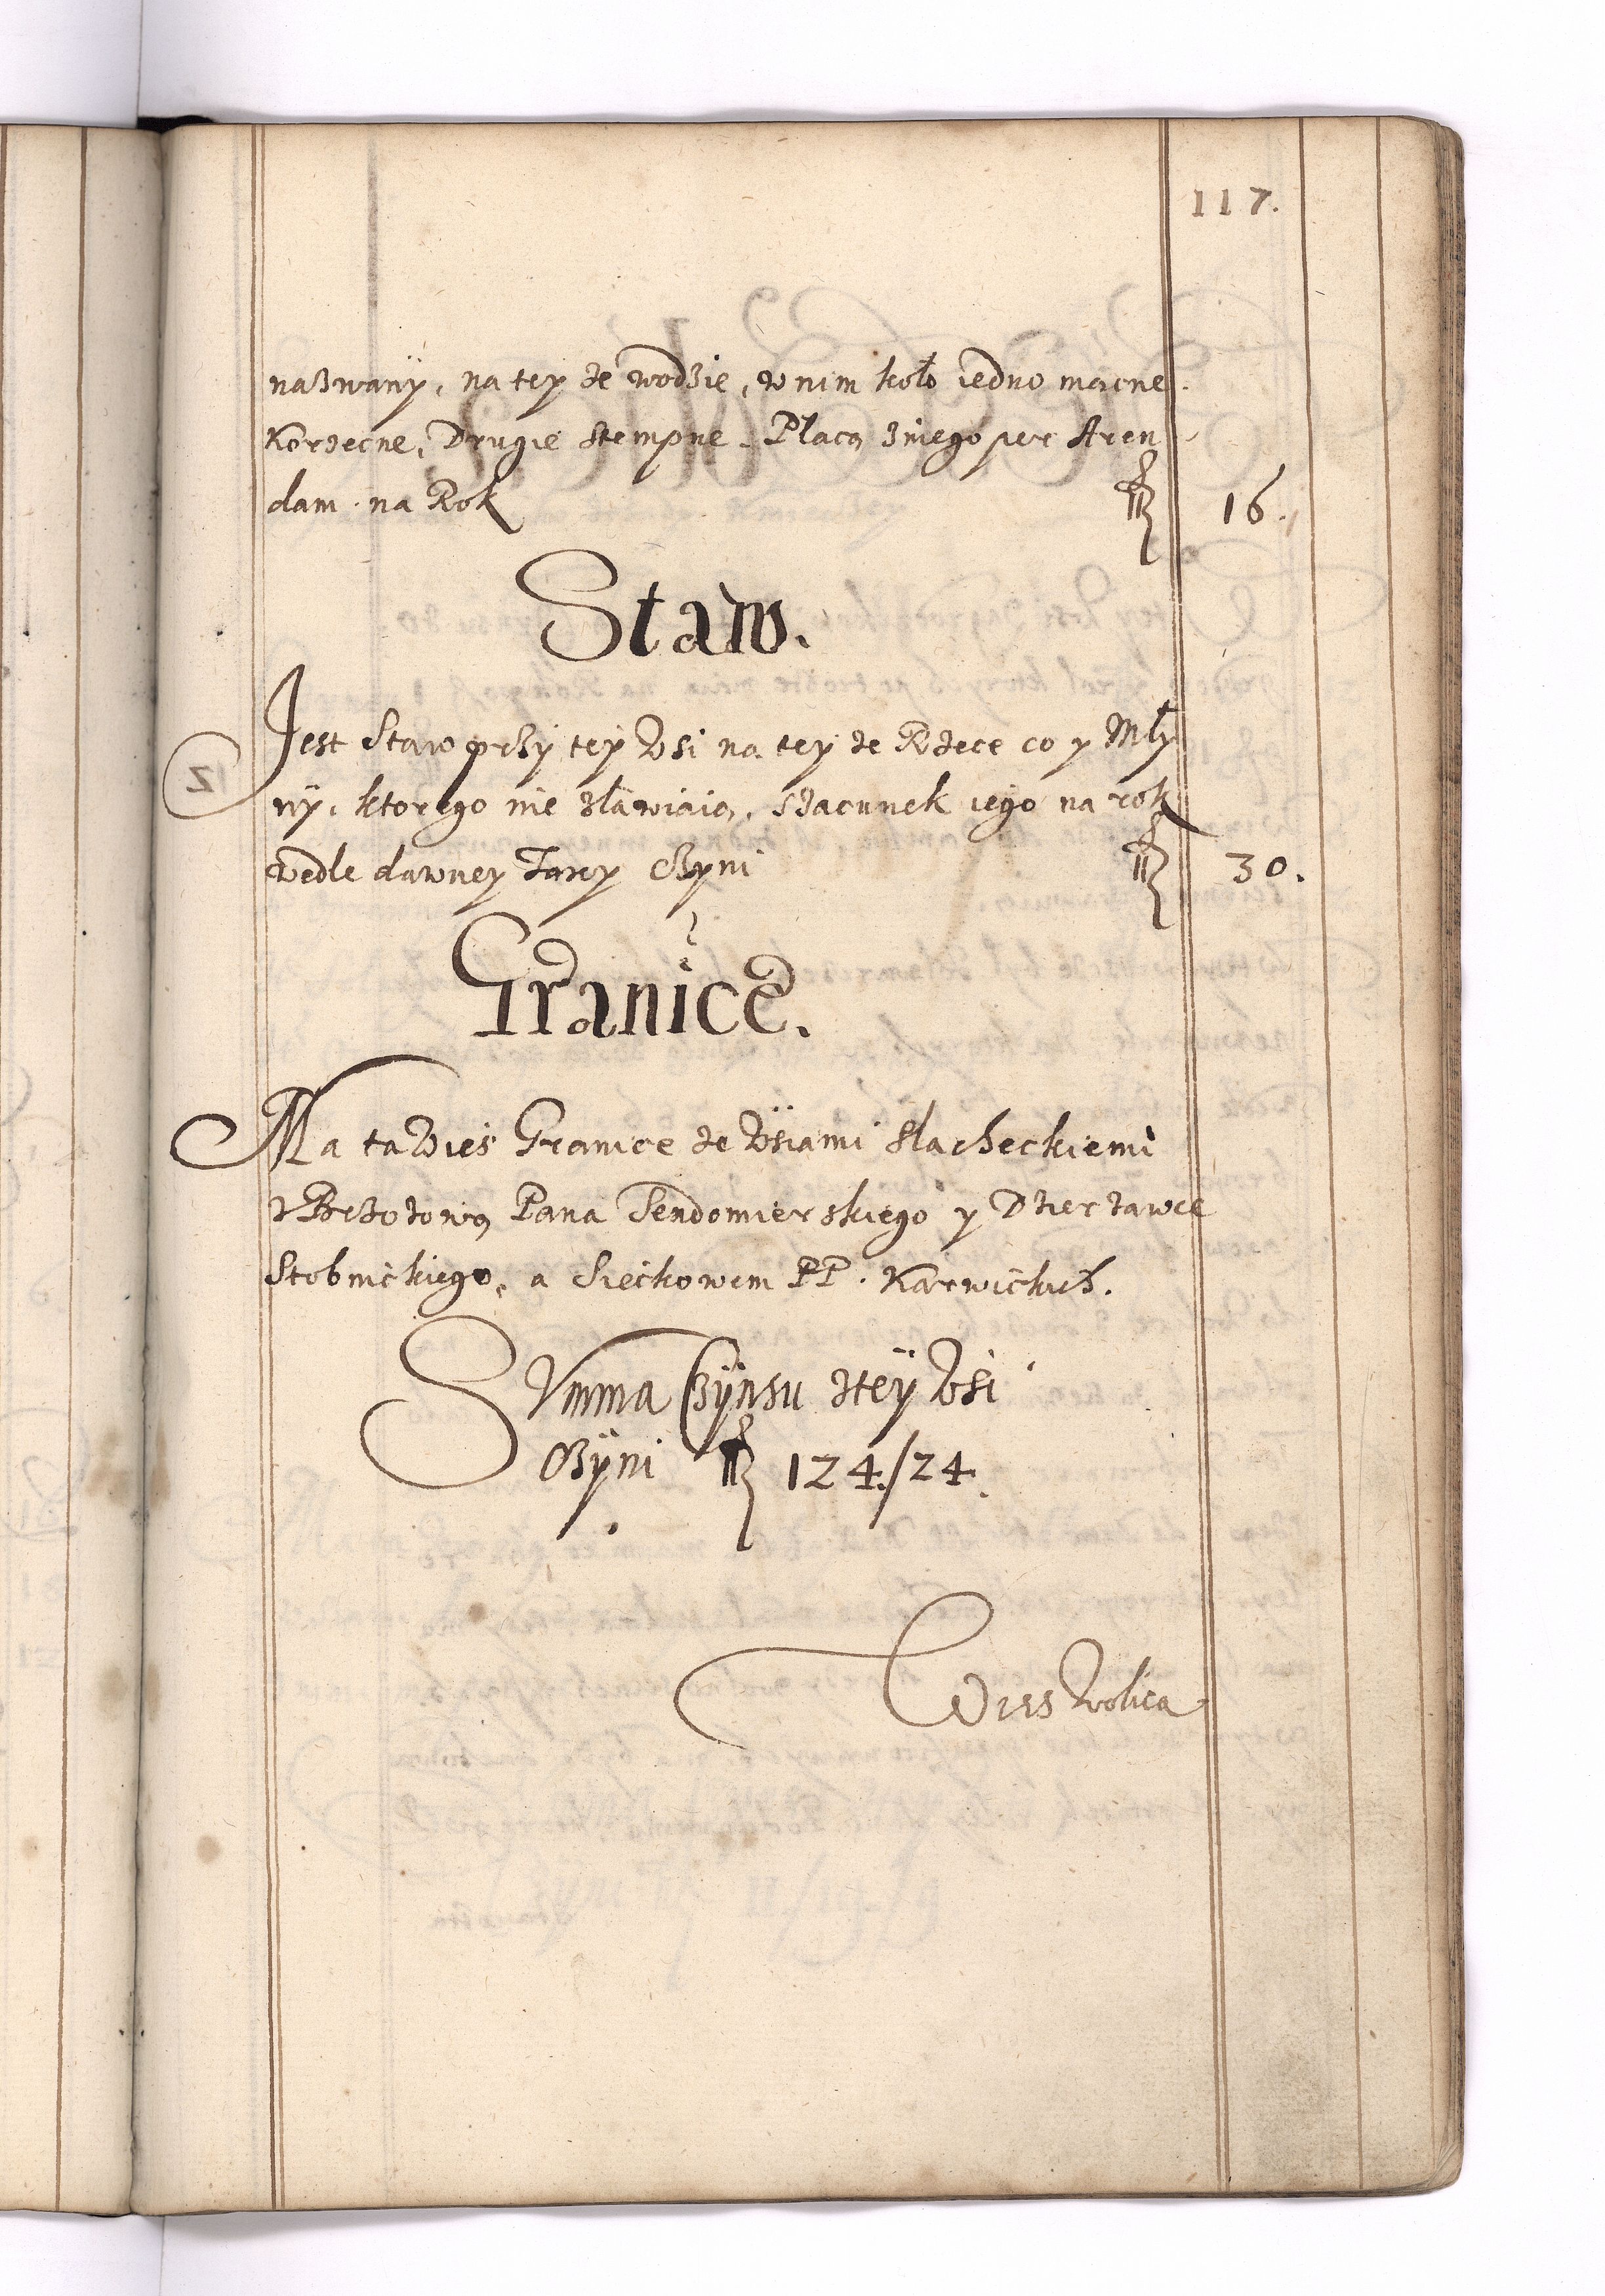 117.
nazwany, na tey że wodzie, w nim koło iedno mącne
Korzecne, Drugie stempne. Płacą z niego per Aren
dam na Rok fl 16.
Staw.
Jest Staw przy tey Wsi na tey że Rzece co y Mły
ny, ktorego nie zławiaią, szacunek iego na rok
wedle dawney Taxy czyni fl 30.
Granice.
Ma ta Wieś Granice ze Wsiami slacheckiemi
z Brzozową Pana Sendomierskiego y Dzierzawce
Stobnickiego, a Sieckowem PP. Karwickich.
Summa Czynsu z tey Wsi
Czyni fl 124./24.
Wies Wolica